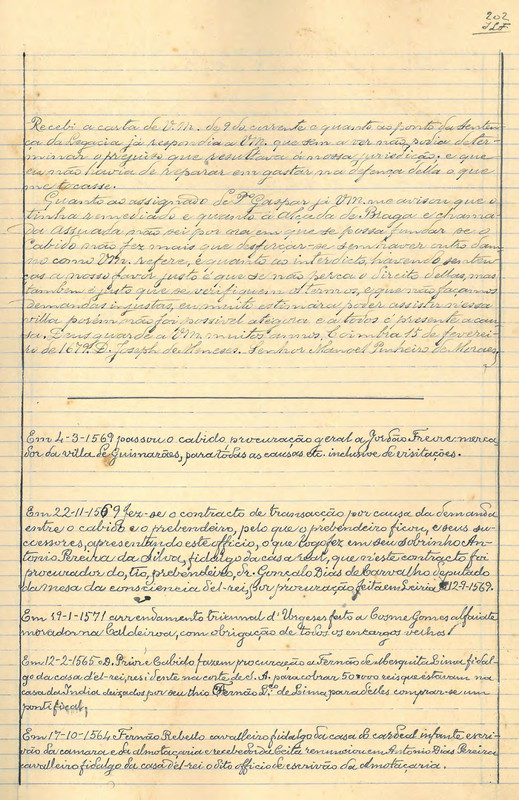 202
Recebi a carta de V.M. de 9 do corrente e quanto ao ponto da senten-
ça da Legacia já respondi a V.M. que sem a ver não podia deter-
minar o prejuizo que resultava á nossa jurisdição, e que
eu não havia de reparar em gastar na defença della o que
me tocasse.
Quanto ao assignado de Pº Gaspar já V.M. me avisou que o
tinha remediado e quanto á Alçada de Braga e chama-
da Assuada não sei por ora em que se possa fundar se o
Cabido não fez mais que desforçar-se sem haver outro dam-
no como V.M. refere, e quanto ao interdicto, havendo senten-
ças a nosso favor justo é que se não perca o direito dellas, mas
tambem é justo que se verifiquem os termos, e que não façamos
demandas injustas, eu muito estimára poder assistir nessa
villa porém não foi possivel atégora e a todos é presente a cau-
sa. Deus guarde a V.M. muitos annos, Coimbra 15 de feverei-
ro de 1679. D. Joseph de Menezes. Senhor Manoel Pinheiro de Moraes.
Em 4-3-1569 passou o cabido procuração geral a Jordão Freire merca-
dor da villa de Guimarães, para todas as causas etc. inclusive de visitações.
Em 22-11-1569 fez-se o contracto de transacção por causa da demanda
entre o cabido e o prebendeiro, pelo que o prebendeiro ficou, e seus suc-
cessores, apresentando este officio, o que logo fez em seu sobrinho An-
tonio Pereira da Silva, fidalgo da casa real, que neste contracto foi
procurador do tio, prebendeiro, dr. Gonçalo Dias de Carvalho, deputado
da mesa da consciencia d'el-rei, por procuração feita em Leiria a 12-9-1569.
Em 19-1-1571 arrendamento triannal d'Urgeses feito a Cosme Gomes alfaiate
morador na Caldeiroa, com obrigação de todos os encargos velhos.
Em 12-2-1565 o D. Prior e Cabido fazem procuração a Fernão de Mesquita Lima fidal-
go da casa d'el-rei, residente na corte de S. A. para cobrar 50$000 reis que estavam na
casa da India deixados por seu thio Fernão de Lima, para delles comprar-se um
pontifical.
Em 17-10-1564 Fernão Rebello cavalleiro fidalgo da casa do cardeal infante escri-
vão da camara e da almotaçaria e recebendo renunciou em Antonio Dias Pereira
cavalleiro fidalgo da casa d'el-rei o dito officio de escrivão da almotaçaria.